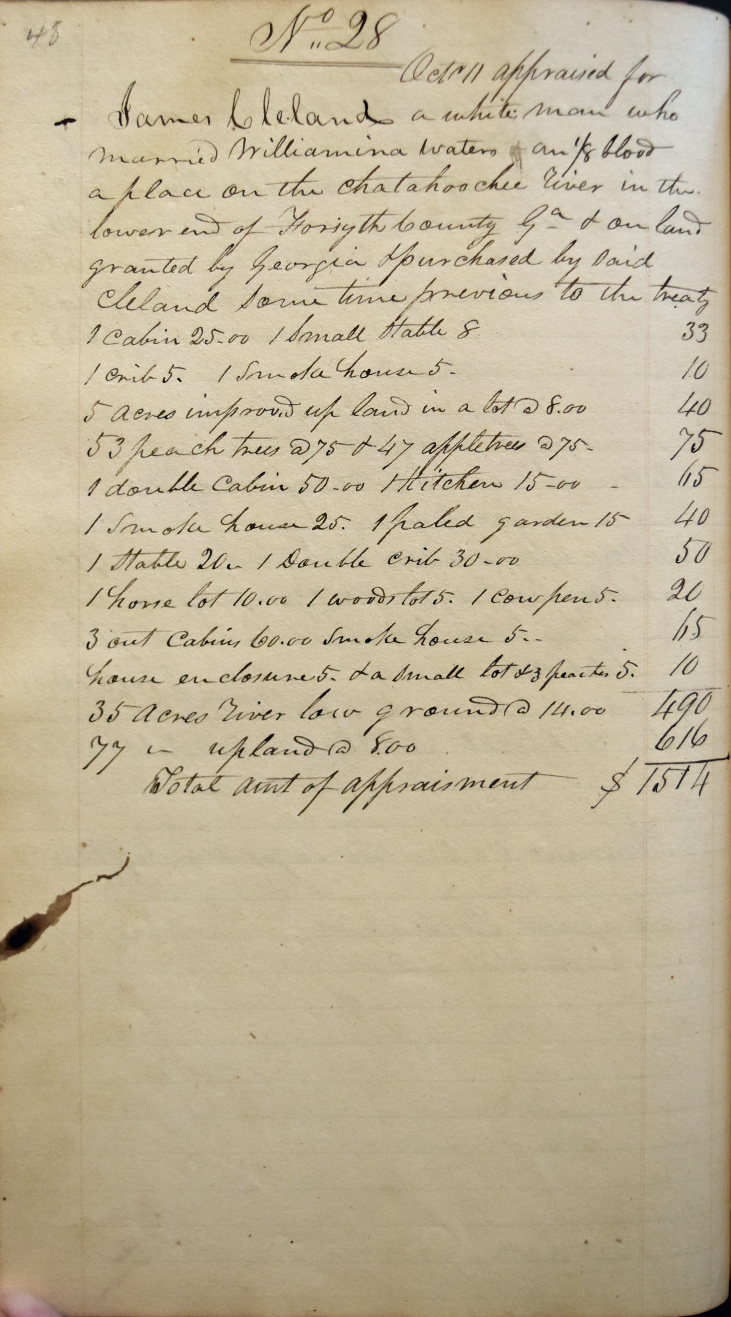 48
No 28
Octr 11 appraised for
James Cleland a white man who
married Williamina Waters an 1/8 blood
a place on the Chatahoochee River in the
lower end of Forsyth County Ga & on land
granted by Georgia & purchased by said
Cleland some time previous to the treaty
1 Cabin 25.00 1 Small Stable 8 33
1 crib 5. 1 Smoke house 5. 10
5 Acres improved up land in a lot @ 8.00 40
53 peach trees @ 75 & 47 appletrees @ 75- 75
1 double Cabin 50-00 1 Kitchen 15-00 - 65
1 Smoke house 25. 1 paled garden 15 40
1 Stable 20. 1 Double crib 30-00 50
1 horse lot 10.00 1 woods lot 5. 1 cow pen 5. 20
3 out Cabins 60.00 Smoke house 5.. 65
house enclosure 5. & a small lot & 3 peaches 5. 10
35 Acres River low ground @ 14.00 490
77 " upland @ 8.00 616
Total amt of appraisment $ 1514